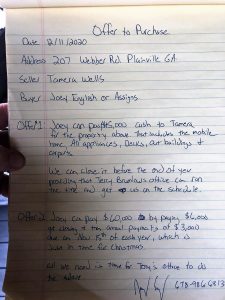 Offer to Purchase
Date 12/11/2020
Address 207 Webber Rd. Plainville GA
Seller Tamera Wells
Buyer Joey English or Assigns
Offer 1 Joey can pay 5,000 cash to Tamera
for the property above that includes the mobile
home. All appliances, Decks, out buildings &
carports.
We can close it before the end of year
providing that Terry office can run
the title and get us on the schedule.
Offer 2 Joey can pay $60,000 by paying $6,000
at closing & then annual payments of $3,000
due on Nov 15th of each year, which is
just in time for Christmas.
All we need is time for Terry's office to do
the
678-986-6813